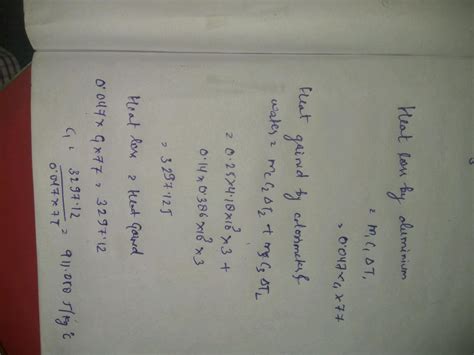 Heat loss by aluminium
= m₁ C₁ ΔT₁
= 0.047 x C₁ x 77
Heat gained by calorimeter &
water = m C₂ ΔT₂ + m₃ C₃ ΔT₂
= 0.25 x 4.18 x 10³ x 3 +
0.14 x 0.386 x 10³ x 3
= 3297.12 J
Heat loss = Heat Gained
0.047 x C₁ x 77 = 3297.12
C₁ = 3297.12 / 0.047 x 77 = 911.060 J/kg °C